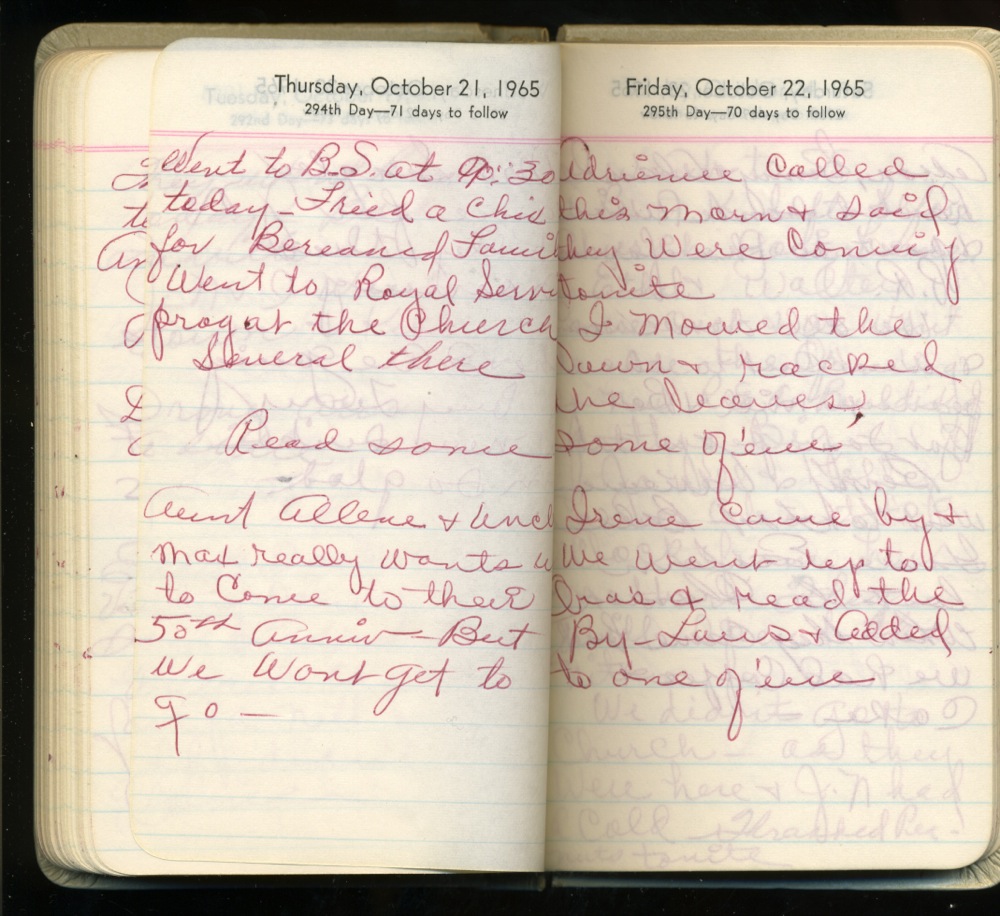 Thursday, October 21, 1965
294th Day—71 days to follow
Went to B.S. at 9:30
today - Fried a Chic
for Bereaved Fami
Went to Royal Serv
prog at the Church
Several there
Read some
Aunt Allene & Uncl
Max really wants u
to Come to their
50th Anniv - But
we Wont get to
go -
Friday, October 22, 1965
295th Day—70 days to follow
Adrienne Called
this Morn & said
they Were Coming
tonite
I Mowed the
Lawn & racked
the leaves,
some of 'em
Irene Came by &
We Went up to
& read the
By-Laws & Added
to one of 'em